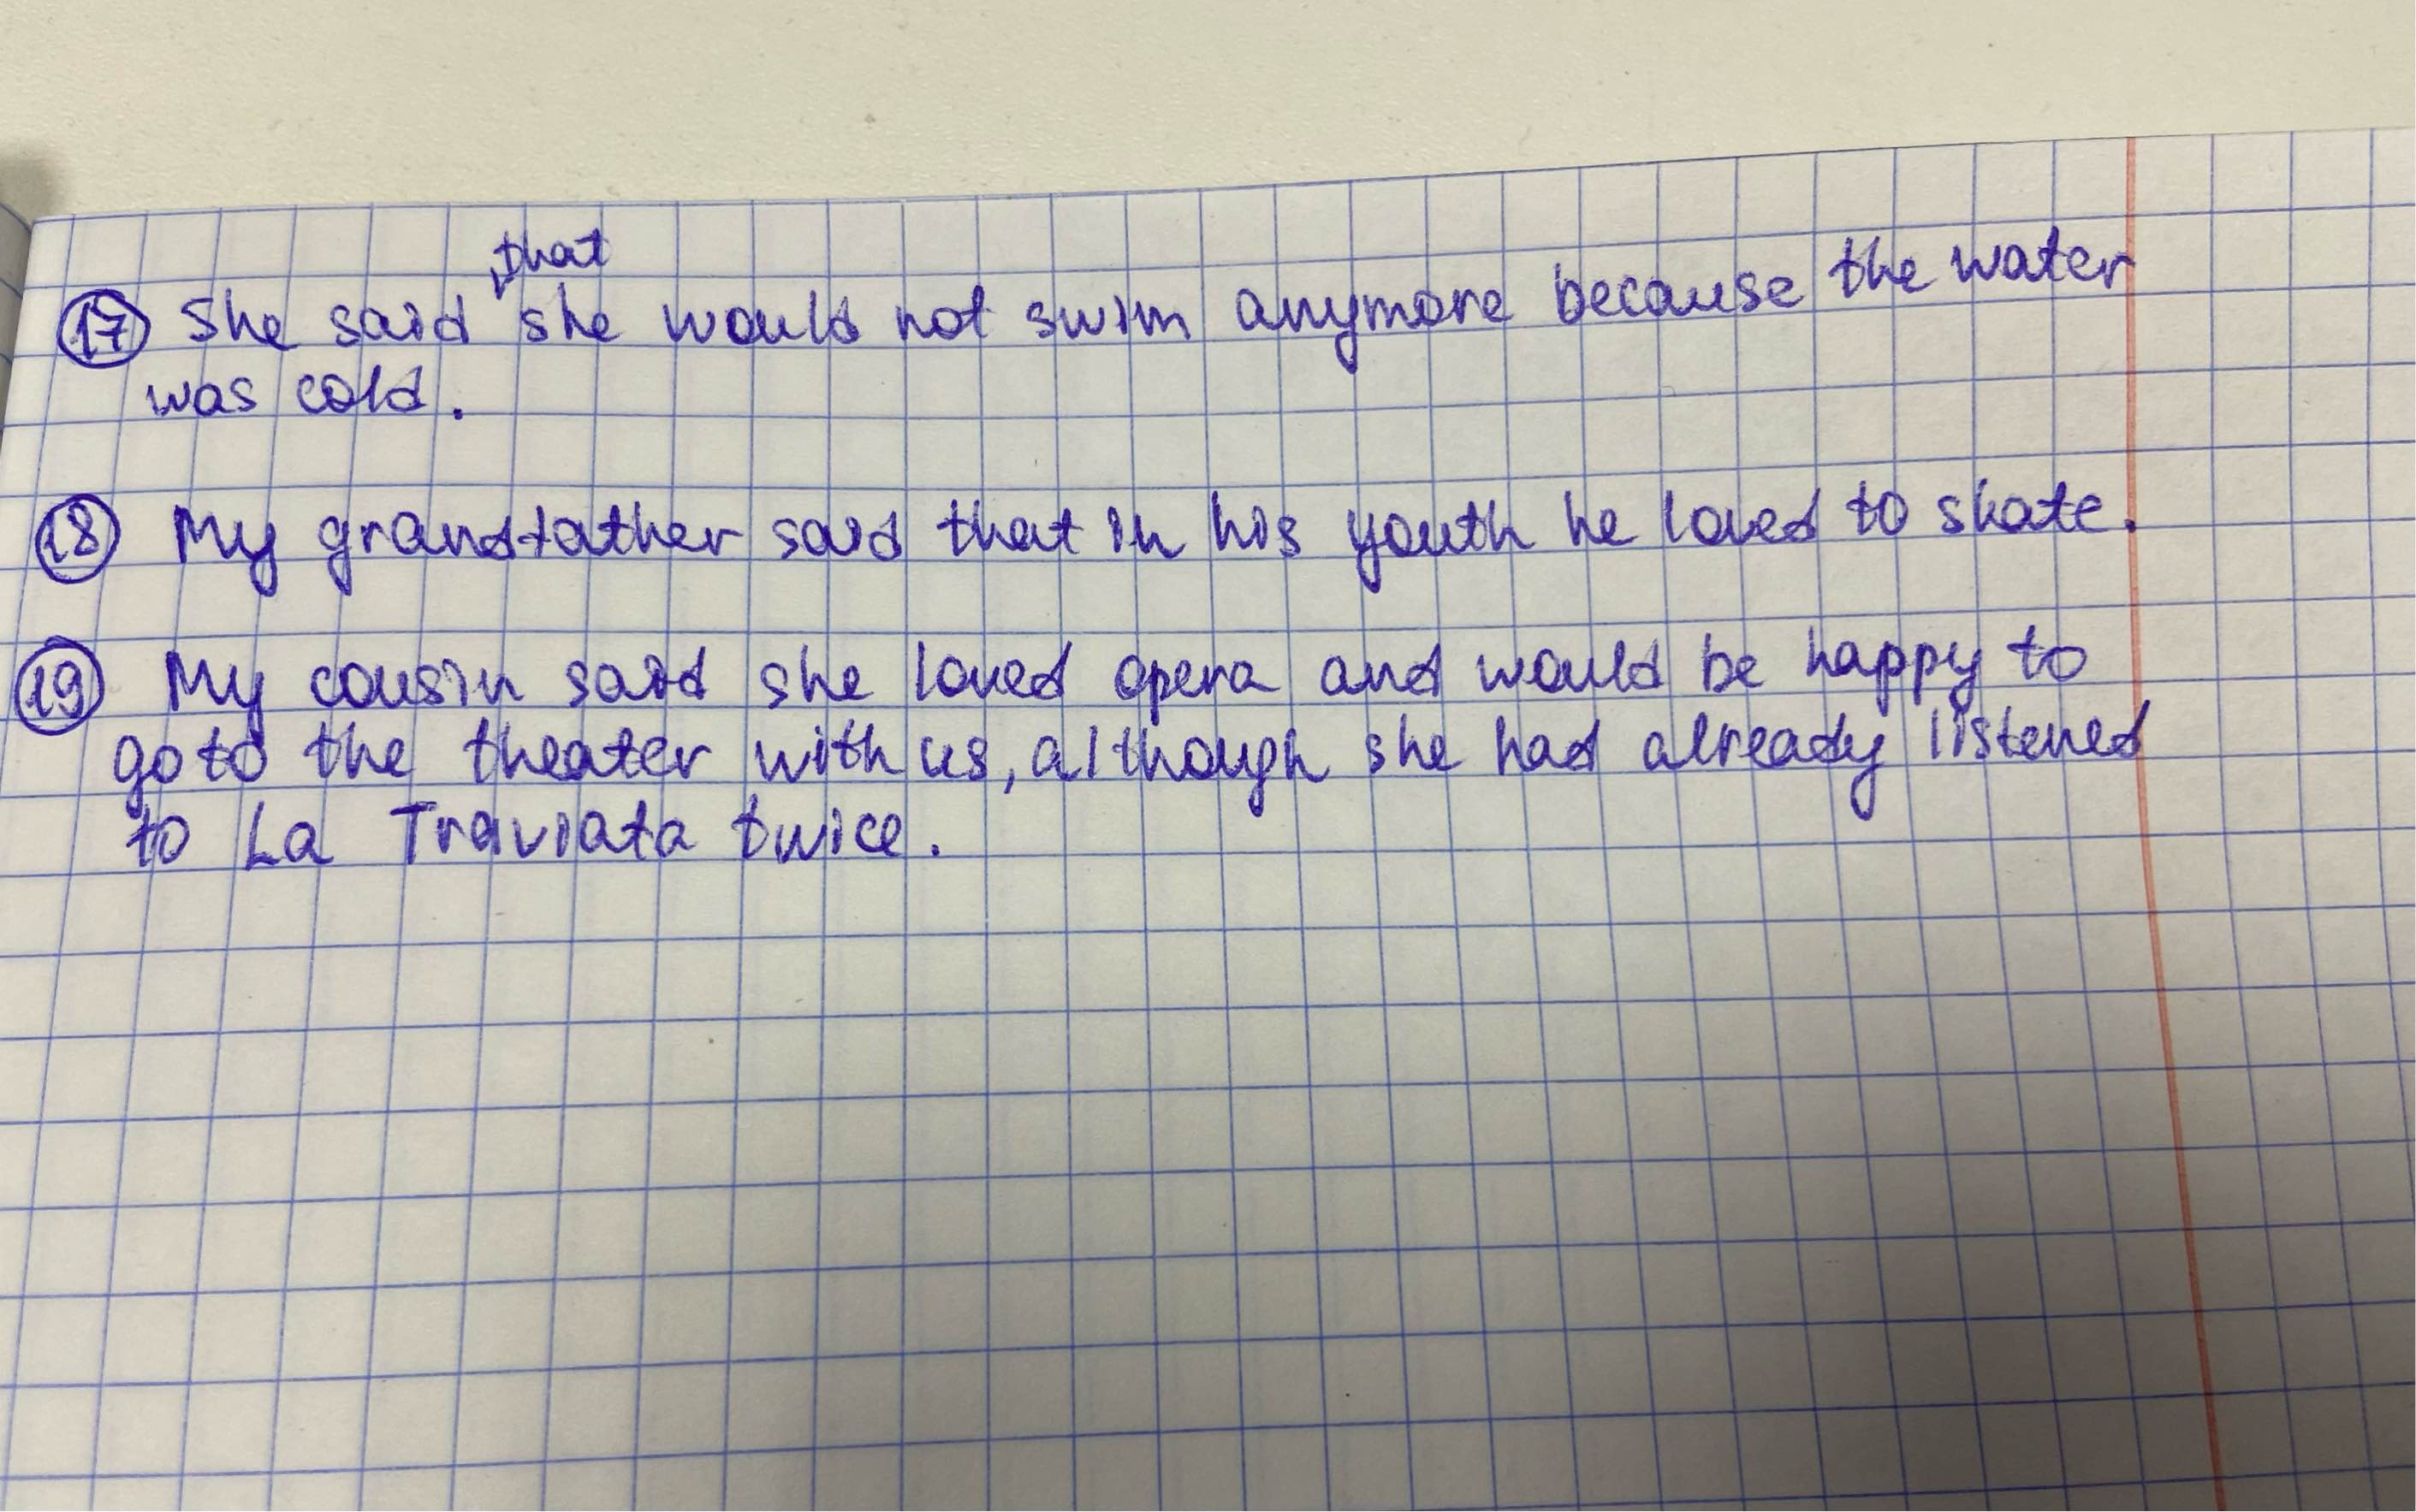 17 She said that she would not swim anymore because the water
was cold.
18 My grandfather said that in his youth he loved to skate.
19 My cousin said she loved opera and would be happy to
go to the theater with us, although she had already listened
to La Traviata twice.